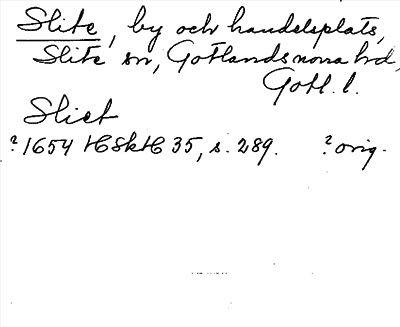 Slite, by och handelsplats,
Slite sn, Gotlands norra hd,
Gotl. l.
Sliet
? 1654 HSkH 35, s. 289. ? orig.